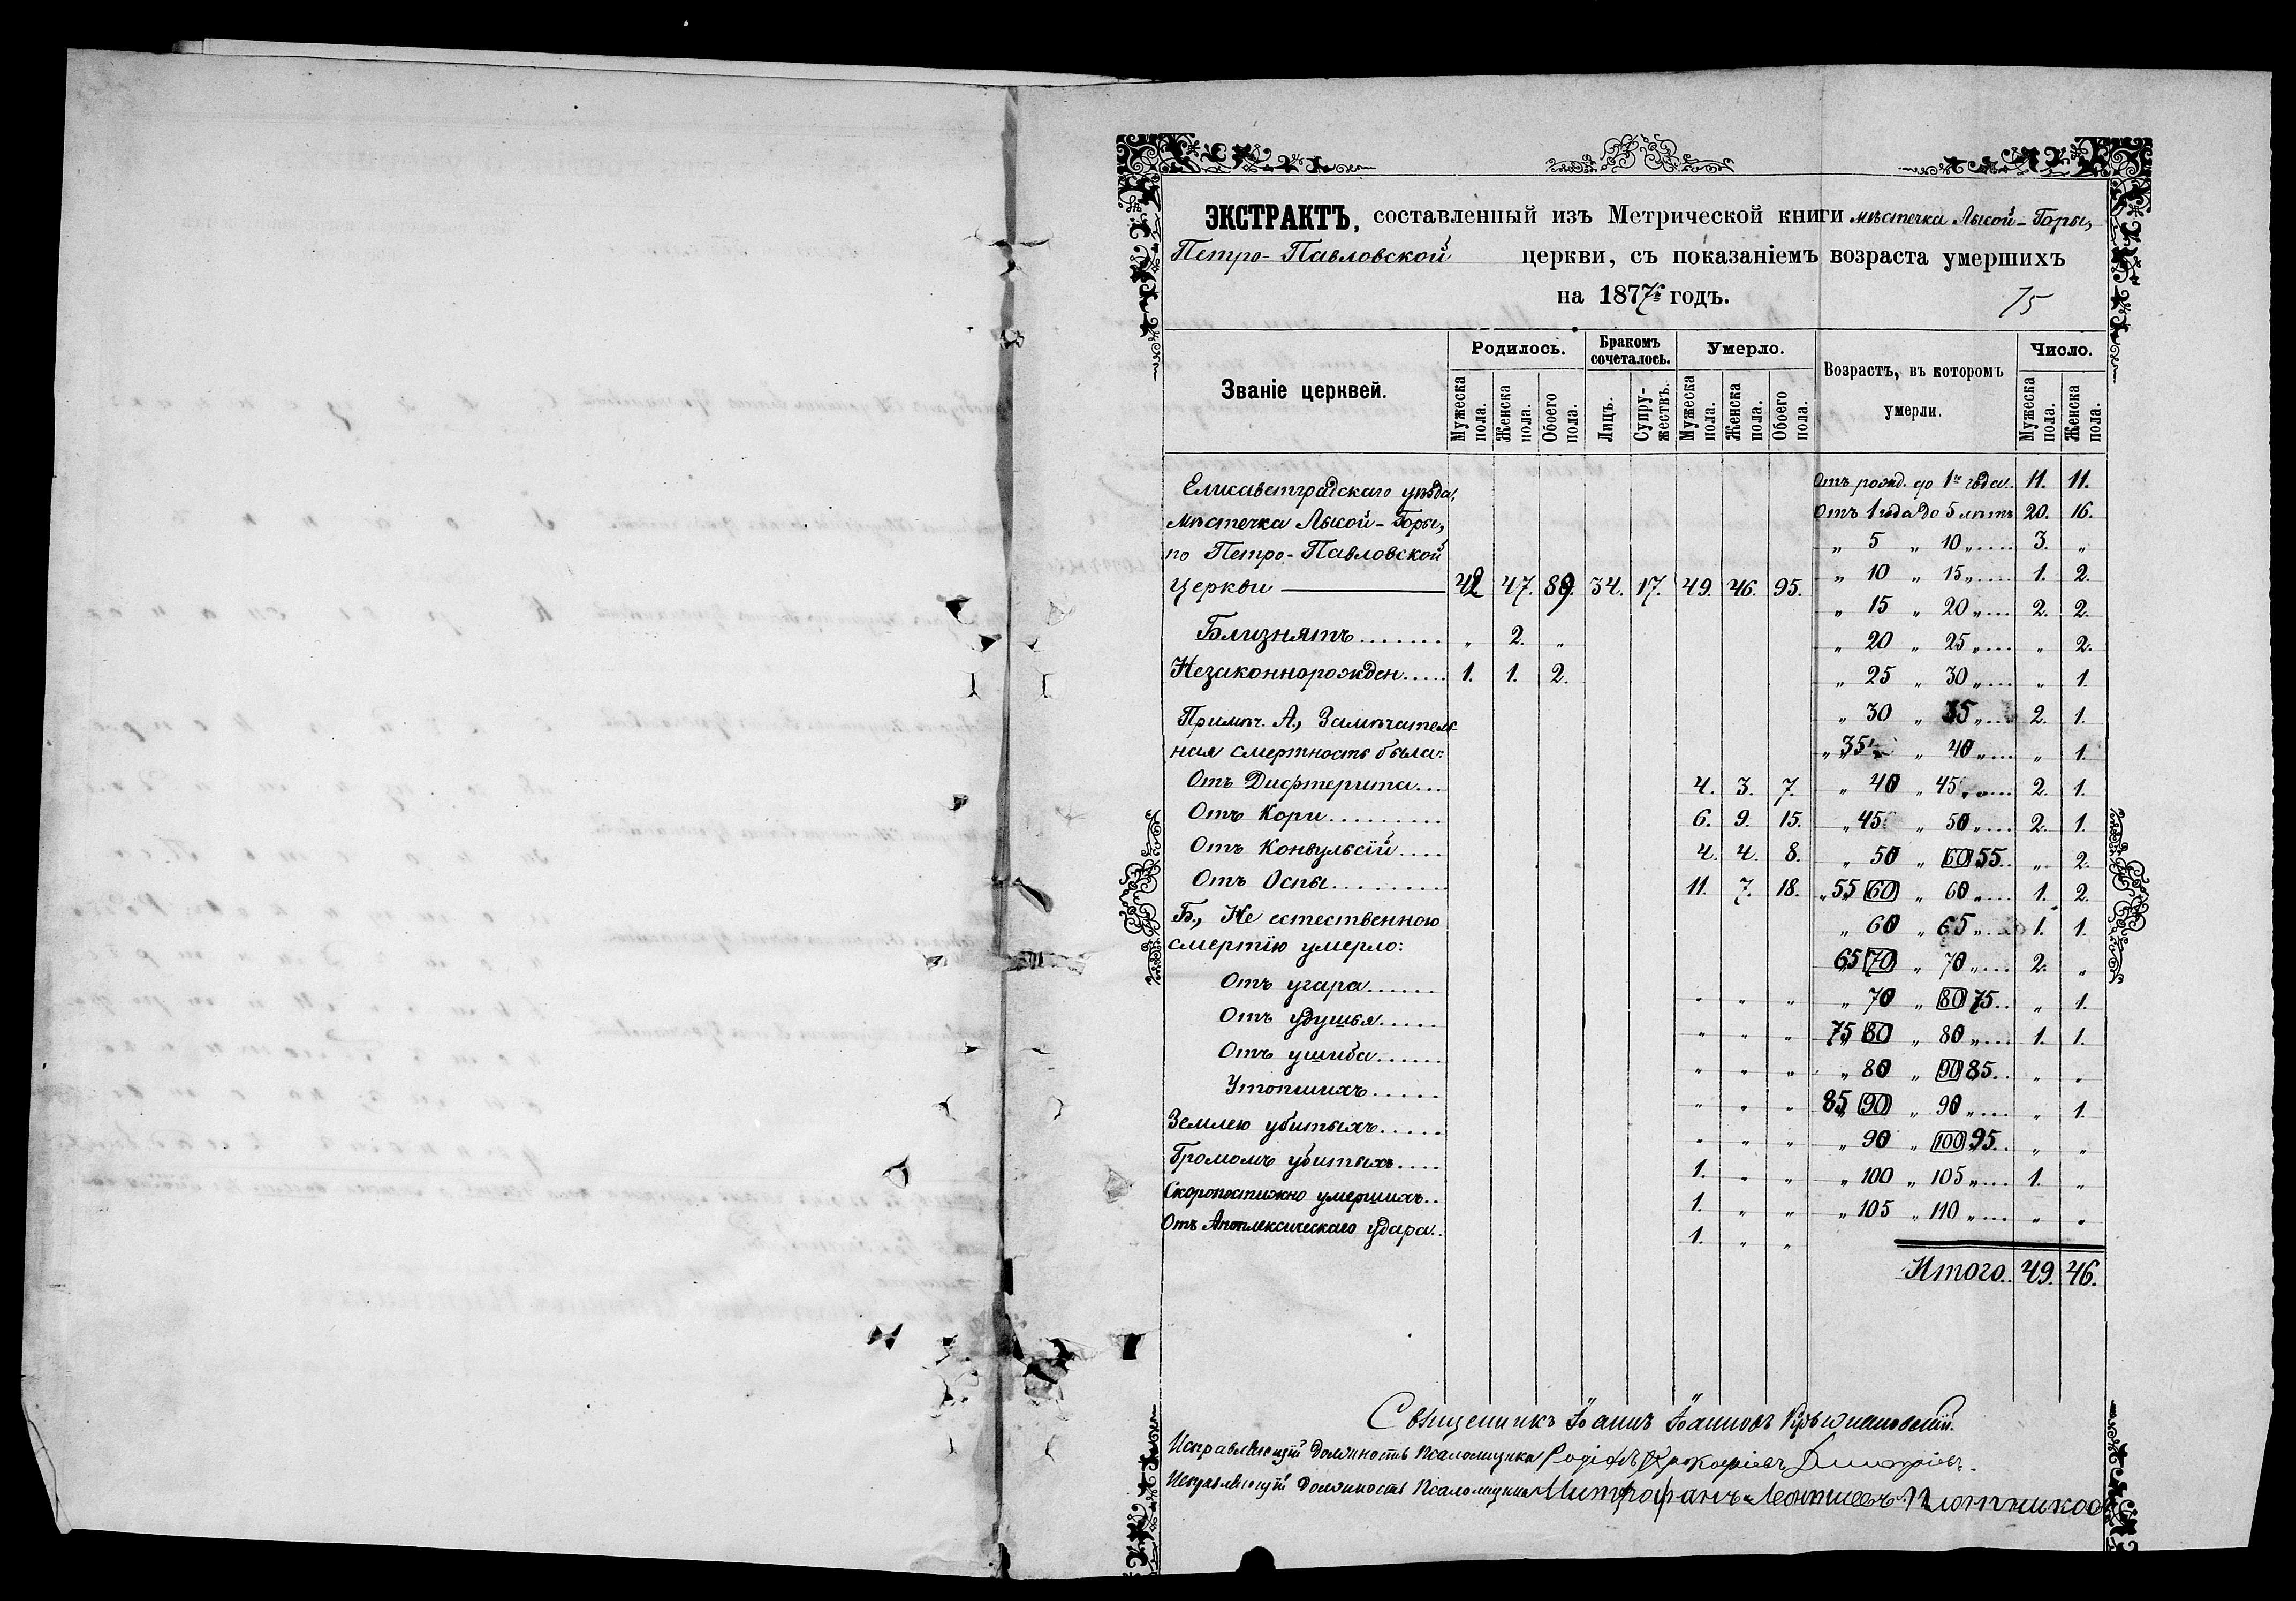 ЭКСТРАКТЪ, составленный изъ Метрической книги мѣстечка Лысой-Горы,
Петро-Павловской церкви, съ показаніемъ возраста умершихъ
на 1877й годъ.
75
Званіе церквей. Родилось. Бракомъ сочеталось. Умерло. Возрастъ, въ которомъ умерли. Число.
Мужеска пола. Женска пола. Обоего пола. Лицъ. Супружествъ. Мужеска пола. Женска пола. Обоего пола. Мужеска пола. Женска пола.
Елисаветградскаго уѣзда,
мѣстечка Лысой-Горы,
по Петро-Павловской
Церкви 42 47. 89. 34. 17. 49. 46. 95.
Близнятъ „ 2. „
Незаконнорожден 1. 1. 2.
Примѣч. А., Замѣчатель-
ная смертность была:
Отъ Дифтерита 4. 3. 7.
Отъ Кори 6. 9. 15.
Отъ Конвульсій 4. 4. 8.
Отъ Оспы 11. 7. 18.
Б., Не естественною
смертію умерло:
Отъ угара „ „ „
Отъ удушья „ „ „
Отъ ушиба „ „ „
Утопшихъ „ „ „
Землею убитыхъ „ „ „
Громомъ убитыхъ 1. „ „
Скоропостижно умершихъ 1. „ „
Отъ Апоплексическаго удара 1. „ „
Отъ рожд. до 1го года 11. 11.
Отъ 1 года до 5 лѣтъ 20. 16.
„ 5 „ 10 „ 3. „
„ 10 „ 15 „ 1. 2.
„ 15 „ 20 „ 2. 2.
„ 20 „ 25 „ „ 2.
„ 25 „ 30 „ „ 1.
„ 30 „ 35 „ 2. 1.
„ 35 „ 40 „ „ 1.
„ 40 „ 45 „ 2. 1.
„ 45 „ 50 „ 2. 1.
„ 50 „ 60 55 „ 2.
„ 55 60 „ 60 „ 1. 2.
„ 60 „ 65 „ 1. 1.
65 70 „ 70 „ 2. „
„ 70 „ 80 75 „ 1.
75 80 „ 80 „ 1. 1.
„ 80 „ 90 85 „ „
85 90 „ 90 „ „ 1.
„ 90 „ 100 95 „ „
„ 100 „ 105 „ 1. „
„ 105 „ 110 „ „ „
Итого. 49. 46.
Священникъ Іоаннъ Іоанновъ
Исправляющій Должность Псаломщика Родіонъ Прокофіевъ Димитріевъ.
Исправляющій Должность Псаломщика Митрофанъ Леонтиевъ Плотниковъ